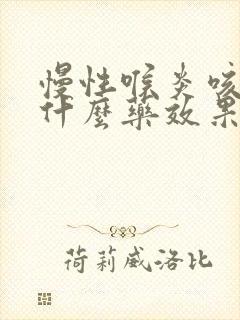 慢性喉炎咳
什麼藥效果
荷莉威洛比